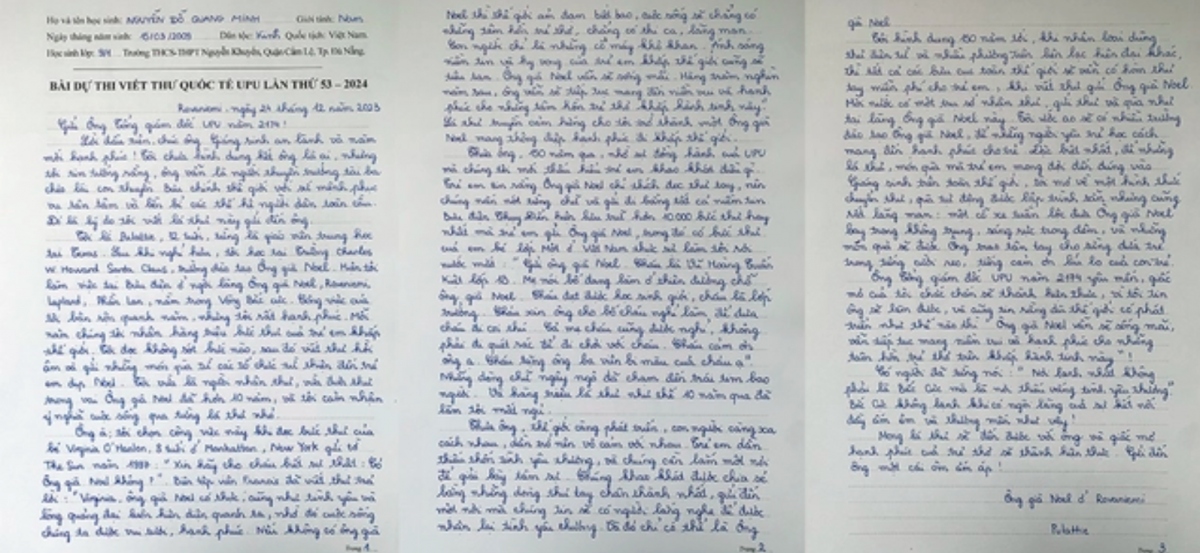 Họ và tên học sinh: NGUYỄN ĐỖ QUANG MINH Giới tính: Nam
Ngày tháng năm sinh: 15/03/2009 Dân tộc: Kinh Quốc tịch: Việt Nam.
Học sinh lớp: 9/4 Trường THCS-THPT Nguyễn Khuyến, Quận Cẩm Lệ, Tp. Đà Nẵng.
BÀI DỰ THI VIẾT THƯ QUỐC TẾ UPU LẦN THỨ 53 – 2024
Rovaniemi, ngày 24 tháng 12 năm 2023
Gửi Ông Tổng giám đốc UPU năm 2174!
Lời đầu tiên, chúc ông Giáng sinh an lành và năm
mới hạnh phúc! Tôi chưa hình dung hết ông là ai, nhưng
tôi tin tưởng rằng, ông vẫn là người thuyền trưởng tài ba
chèo lái con thuyền Bưu chính thế giới với sứ mệnh phục
vụ tận tâm và bền bỉ các thế hệ người dân toàn cầu.
Đó là lý do tôi viết lá thư này gửi đến ông.
Tôi là 12 tuổi, từng là giáo viên trung học
tại Texas. Sau khi nghỉ hưu, tôi học tại Trường Charles
W. Howard Santa Claus, trường đào tạo Ông già Noel. Hiện tôi
làm việc tại Bưu điện ở ngôi làng Ông già Noel, Rovaniemi,
Lapland, Phần Lan, nằm trong Vòng Bắc cực. Công việc của
tôi bận rộn quanh năm, nhưng tôi rất hạnh phúc. Mỗi
năm chúng tôi nhận hàng triệu bức thư của trẻ em khắp
thế giới. Tôi đọc không sót bức nào, sau đó viết thư hồi
âm và gửi những món quà từ các tổ chức từ thiện đến trẻ
em dịp Noel. Tôi vừa là người nhân thư, vừa đưa thư
trong vai Ông già Noel đã hơn 10 năm, và tôi cảm nhận
ý nghĩa cuộc sống qua từng lá thư nhỏ.
Ông à, tôi chọn công việc này khi đọc bức thư của
bé Virginia O'Hanlon, 8 tuổi ở Manhattan, New York gửi tờ
The Sun năm 1897: "Xin hãy cho cháu biết sự thật: Có
Ông già Noel không?". Biên tập viên Francis đã viết thư trả
lời: "Virginia, ông già Noel có thức, cũng như tình yêu và
lòng quảng đại luôn hiện diện quanh ta, nhờ đó cuộc sống
chúng ta được vui tươi, hạnh phúc. Nếu không có ông già
Trang 1
Noel thì thế giới ảm đạm biết bao, cuộc sống sẽ chẳng có
những tâm hồn trẻ thơ, chẳng có thi ca, lãng mạn.
Con người chỉ là những cỗ máy khô khan. Ánh sáng
niềm tin và hy vọng của trẻ em khắp thế giới cũng sẽ
tiêu tan. Ông già Noel vẫn sống mãi. Hàng trăm nghìn
năm sau, ông vẫn sẽ tiếp tục mang đến niềm vui và hạnh
phúc cho những tâm hồn trẻ thơ khắp hành tinh này".
Lá thư truyền cảm hứng cho tôi trở thành một Ông già
Noel mang thông điệp hạnh phúc đi khắp thế giới.
Thưa ông, 150 năm qua, nhờ sự đồng hành của UPU
mà chúng tôi mới thấu hiểu trẻ em khao khát điều gì.
Trẻ em tin rằng Ông già Noel chỉ thích đọc thư tay, nên
chúng nắn nót từng chữ và gửi đi bằng tất cả niềm tin.
Bưu điện Thụy Điển hiện lưu trữ hơn 10.000 bức thư hay
nhất mà trẻ em gửi Ông già Noel, trong đó có bức thư
của em bé lớp Một ở Việt Nam thực sự làm tôi rơi
nước mắt: "Gửi ông già Noel. Cháu là Vũ Hoàng Tuấn
Kiệt lớp 1D. Mẹ nói bố đang làm ở thiên đường chỗ
ông già Noel. Cháu đạt được học sinh giỏi, cháu là lớp
trưởng. Cháu xin ông cho bố cháu nghỉ làm, để đưa
cháu đi coi thú. Cô mẹ cháu cũng được nghỉ, không
phải đi quét rác để đi chơi với cháu. Cháu cảm ơn
ông ạ. Cháu tặng ông ba viên bi màu của cháu ạ".
Những dòng chữ ngây ngô đã chạm đến trái tim bao
người. Và hàng triệu lá thư như thế 10 năm qua đã
làm tôi mất ngủ.
Thưa Ông, thế giới càng phát triển, con người càng xa
cách nhau, dần trở nên vô cảm với nhau. Trẻ em dần
thiếu thốn tình yêu thương, và chúng cần lắm một nơi
để giải bày tâm sự. Chúng khao khát được chia sẻ
bằng những dòng thư tay chân thành nhất, gửi đến
một nơi mà chúng tin sẽ có người lắng nghe để được
nhận lại tình yêu thương. Và đó chỉ có thể là Ông
Trang 2
già Noel.
Tôi hình dung 150 năm tới, khi nhân loại dùng
thư điện tử và nhiều phương tiện liên lạc hiện đại khác,
thì tất cả các bưu cục toàn thế giới sẽ vẫn có hòm thư
tay miễn phí cho trẻ em, khi viết thư gửi Ông già Noel.
Mỗi nước có một trụ sở nhận thư, gửi thư và quà như
tại làng Ông già Noel này. Tôi ước ao sẽ có nhiều trường
đào tạo Ông già Noel, để những người yêu trẻ học cách
mang đến hạnh phúc cho trẻ. Đặc biệt nhất, để những
lá thư, món quà mà trẻ em mong đợi đến đúng vào
Giáng sinh trên toàn thế giới, tôi mơ về một hình thức
chuyển thư, quà tự động được lập trình sẵn nhưng cũng
rất lãng mạn: một cỗ xe tuần lộc đưa Ông già Noel
bay trong không trung, sáng rực trong đêm, và những
món quà sẽ được Ông trao tận tay cho từng đứa trẻ
trong tiếng cười reo, tiếng cảm ơn bi bô của con trẻ.
Ông Tổng giám đốc UPU năm 2174 yêu mến, giấc
mơ của tôi chắc chắn sẽ thành hiện thực, vì tôi tin
ông sẽ làm được, và cũng tin rằng dù thế giới có phát
triển như thế nào thì "Ông già Noel vẫn sẽ sống mãi,
vẫn tiếp tục mang niềm vui và hạnh phúc cho những
tâm hồn trẻ thơ trên khắp hành tinh này"!
Có người đã từng nói: "Nơi lạnh nhất không
phải là Bắc Cực mà là nơi thiếu vắng tình yêu thương".
Bắc Cực không lạnh khi có ngôi làng của sự kết nối
đầy ấm êm và thương mến như vậy!
Mong lá thư sẽ đến được với ông và giấc mơ
hạnh phúc của trẻ thơ sẽ thành hiện thực. Gửi đến
Ông một cái ôm ấm áp!
Ông già Noel ở Rovaniemi
Trang 3